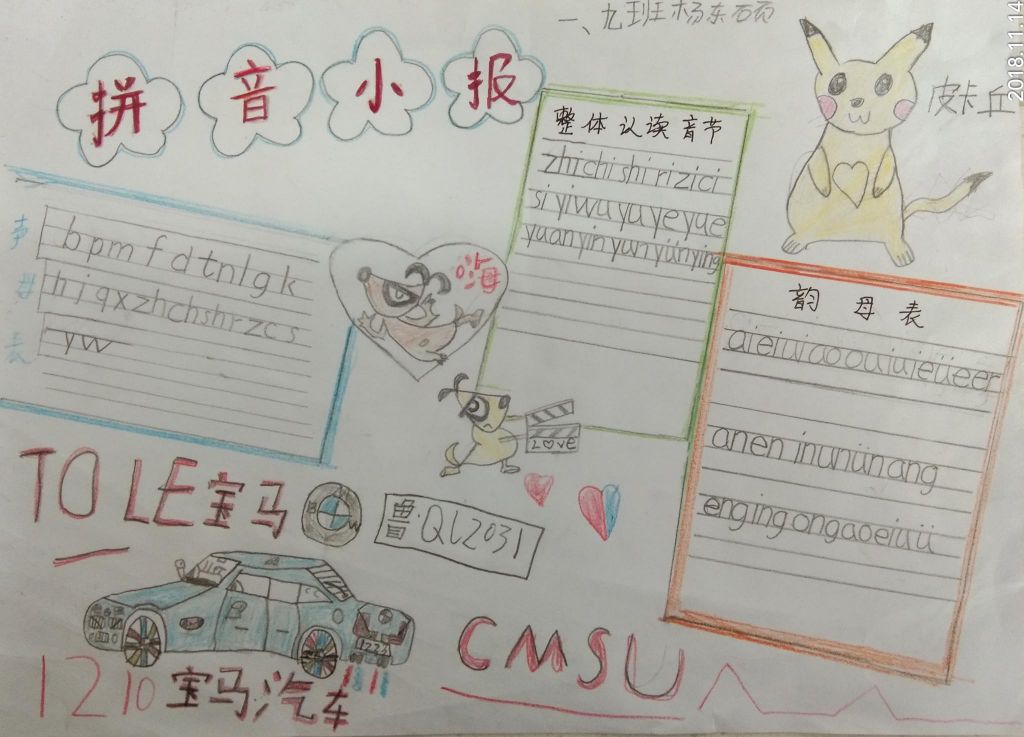 一、九班杨东硕
2018.11.14
拼音小报
皮卡丘
整体认读音节
zhi chi shi ri zi ci
si yi wu yu ye yue
yuan yin yun yün ying
声母表
b p m f d t n l g k
h j q x zh ch sh r z c s
y w
嗨
韵母表
ai ei ui ao ou iu ie üe er
an en in un ün ang
eng ing ong a o e i u ü
LOVE
TO LE 宝马
鲁·QL2031
CMSU
1210宝马汽车